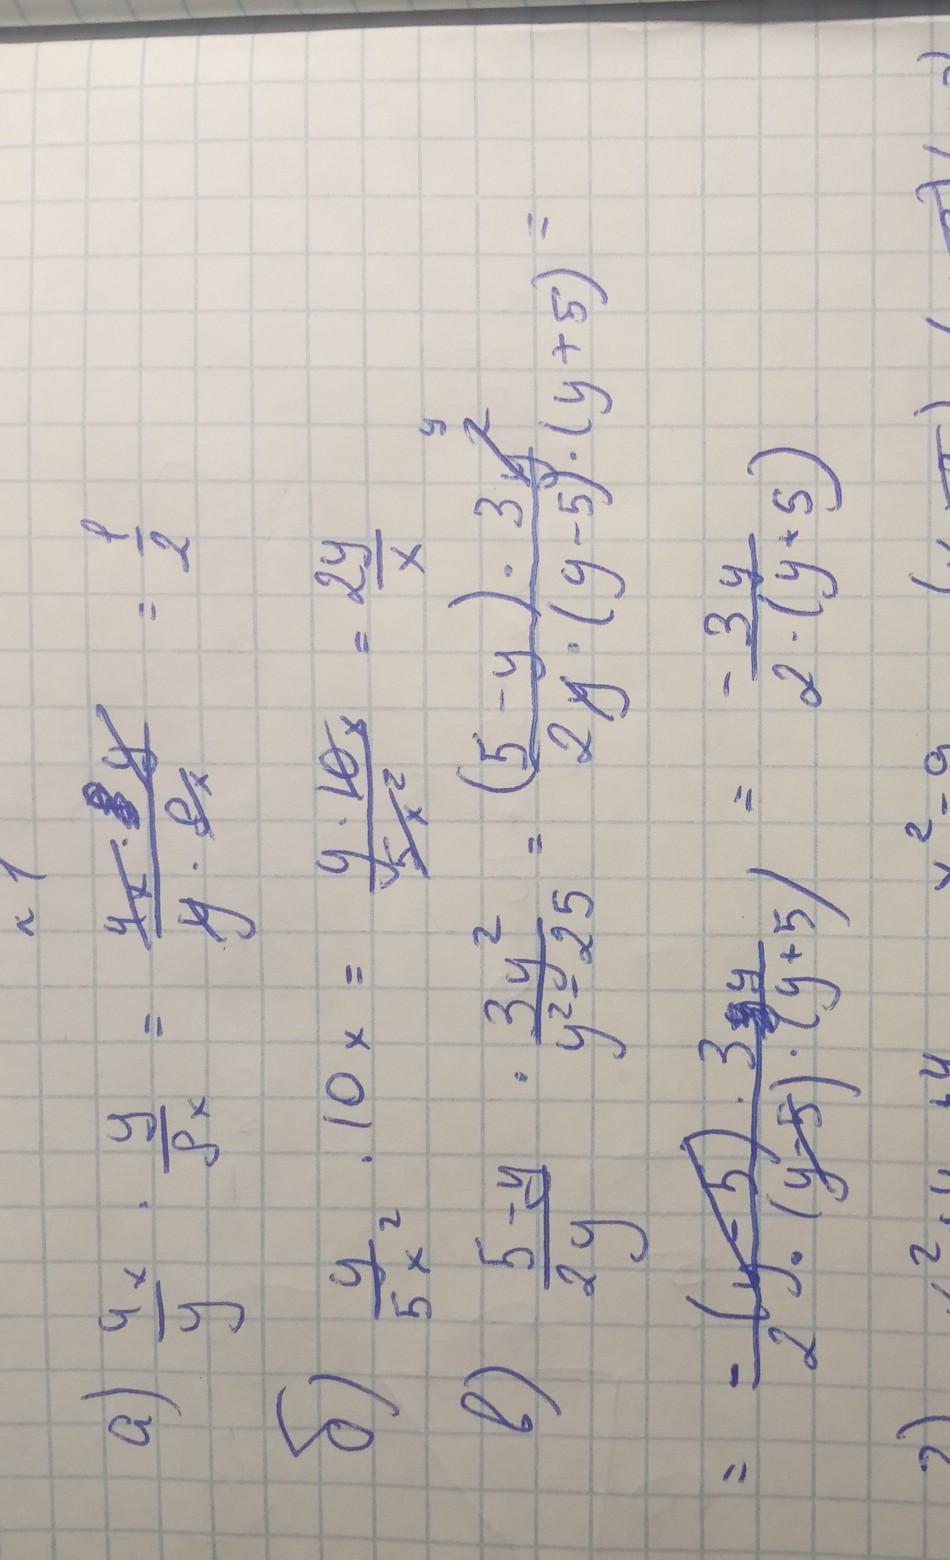 №1
а) 4x/y · y/8x = 4x · y / y · 8x = 1/2
б) y/5x² · 10x = y · 10x / 5x² = 2y/x
в) 5-y/2y · 3y²/y²-25 = (5-y) · 3y² / 2y · (y-5) · (y+5) =
= -(y-5) · 3y / 2 · (y-5) · (y+5) = -3y / 2 · (y+5)